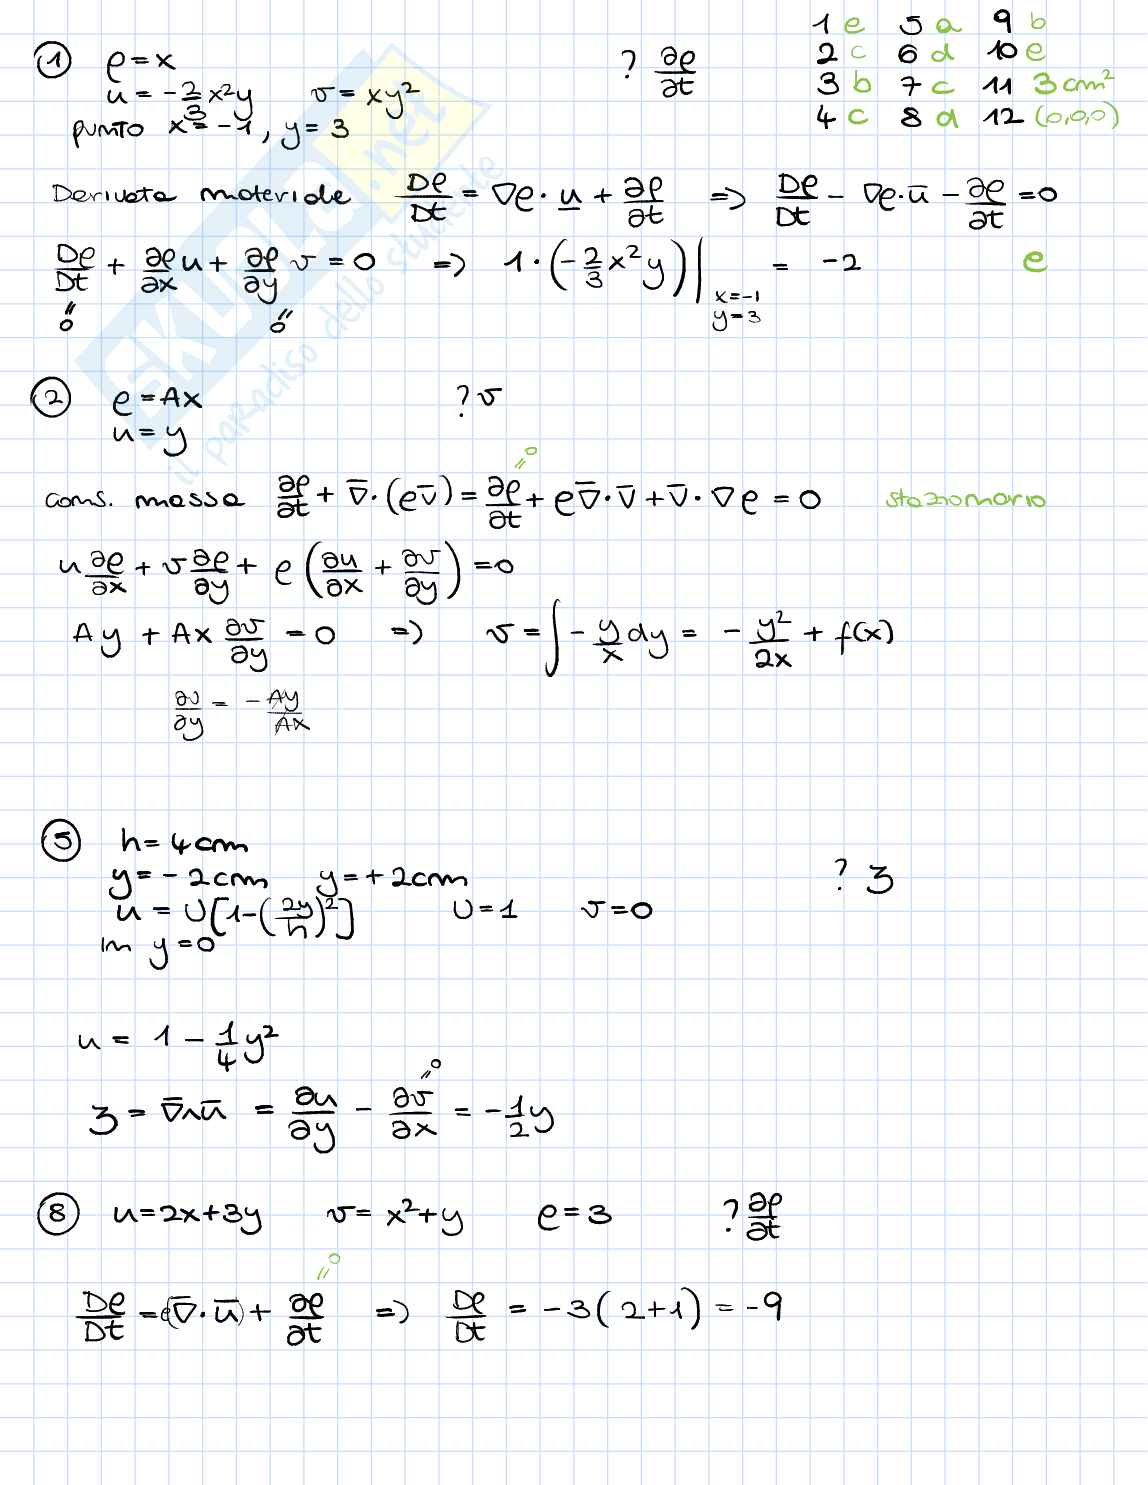 1 e 5 a 9 b
2 c 6 d 10 e
3 b 7 c 11 3 cm²
4 c 8 d 12 (0,0,0)
① ρ = x ? ∂ρ/∂t
u = -2/3 x²y v = xy²
punto x = -1, y = 3
Derivata materiale Dρ/Dt = ∇ρ · u + ∂ρ/∂t => Dρ/Dt - ∇ρ · ū - ∂ρ/∂t = 0
Dρ/Dt + ∂ρ/∂x u + ∂ρ/∂y v = 0 => 1 · (-2/3 x²y) | x=-1 y=3 = -2 e
" 0 " 0
② ρ = Ax ? v
u = y
cons. massa ∂ρ/∂t + ∇̄ · (ρv̄) = ∂ρ/∂t + ρ∇̄ · v̄ + v̄ · ∇ρ = 0 stazionario
" 0
u ∂ρ/∂x + v ∂ρ/∂y + ρ (∂u/∂x + ∂v/∂y) = 0
Ay + Ax ∂v/∂y = 0 => v = ∫ - y/x dy = - y²/2x + f(x)
∂v/∂y = - Ay/Ax
⑤ h = 4cm
y = - 2cm y = + 2cm ? ʒ
u = U[1-(2y/h)²] U = 1 v = 0
In y = 0
u = 1 - 1/4 y²
ʒ = ∇̄∧ū = ∂u/∂y - ∂v/∂x = - 1/2 y
" 0
⑧ u = 2x+3y v = x²+y ρ = 3 ? ∂ρ/∂t
" 0
Dρ/Dt = ρ(∇̄ · ū) + ∂ρ/∂t => Dρ/Dt = -3(2+1) = -9
SKUOLA.net
il paradiso dello studente